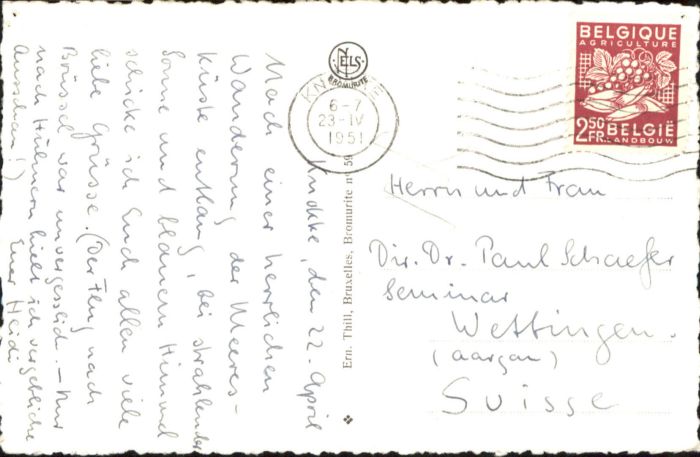 Knokke, den 22. April
Nach einer herrlichen
Wanderung der Meeres-
küste entlang, bei strahlender
Sonne und blauem Himmel
schicke ich Euch allen viele
liebe Grüsse. (Der Flug nach
Brüssel war unvergesslich. – Nur
nach Hühnern hielt ich vergebliche
Ausschau!) Eure Heidi
NELS
BROMURITE
Ern. Thill, Bruxelles, Bromurite
KN
6-7
23-IV
1951
BELGIQUE
AGRICULTURE
2,50 FR. BELGIË
LANDBOUW
Herrn und Frau
Dir. Dr. Paul Schaefer
Seminar
Wettingen.
(Aargau)
Suisse